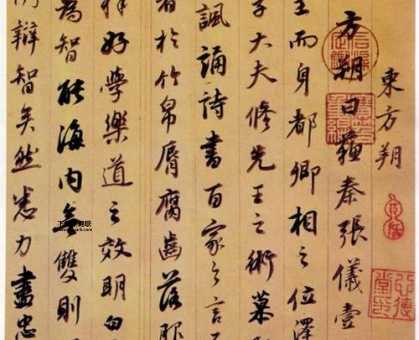 東方朔
方朔曰蘇秦張儀壹
主而身都卿相之位澤
子大夫修先王之術慕
諷誦詩書百家之言不
著於竹帛脣腐齒落服
釋好學樂道之效明白
為智能海内無雙則
聞辯智矣然悉力盡忠